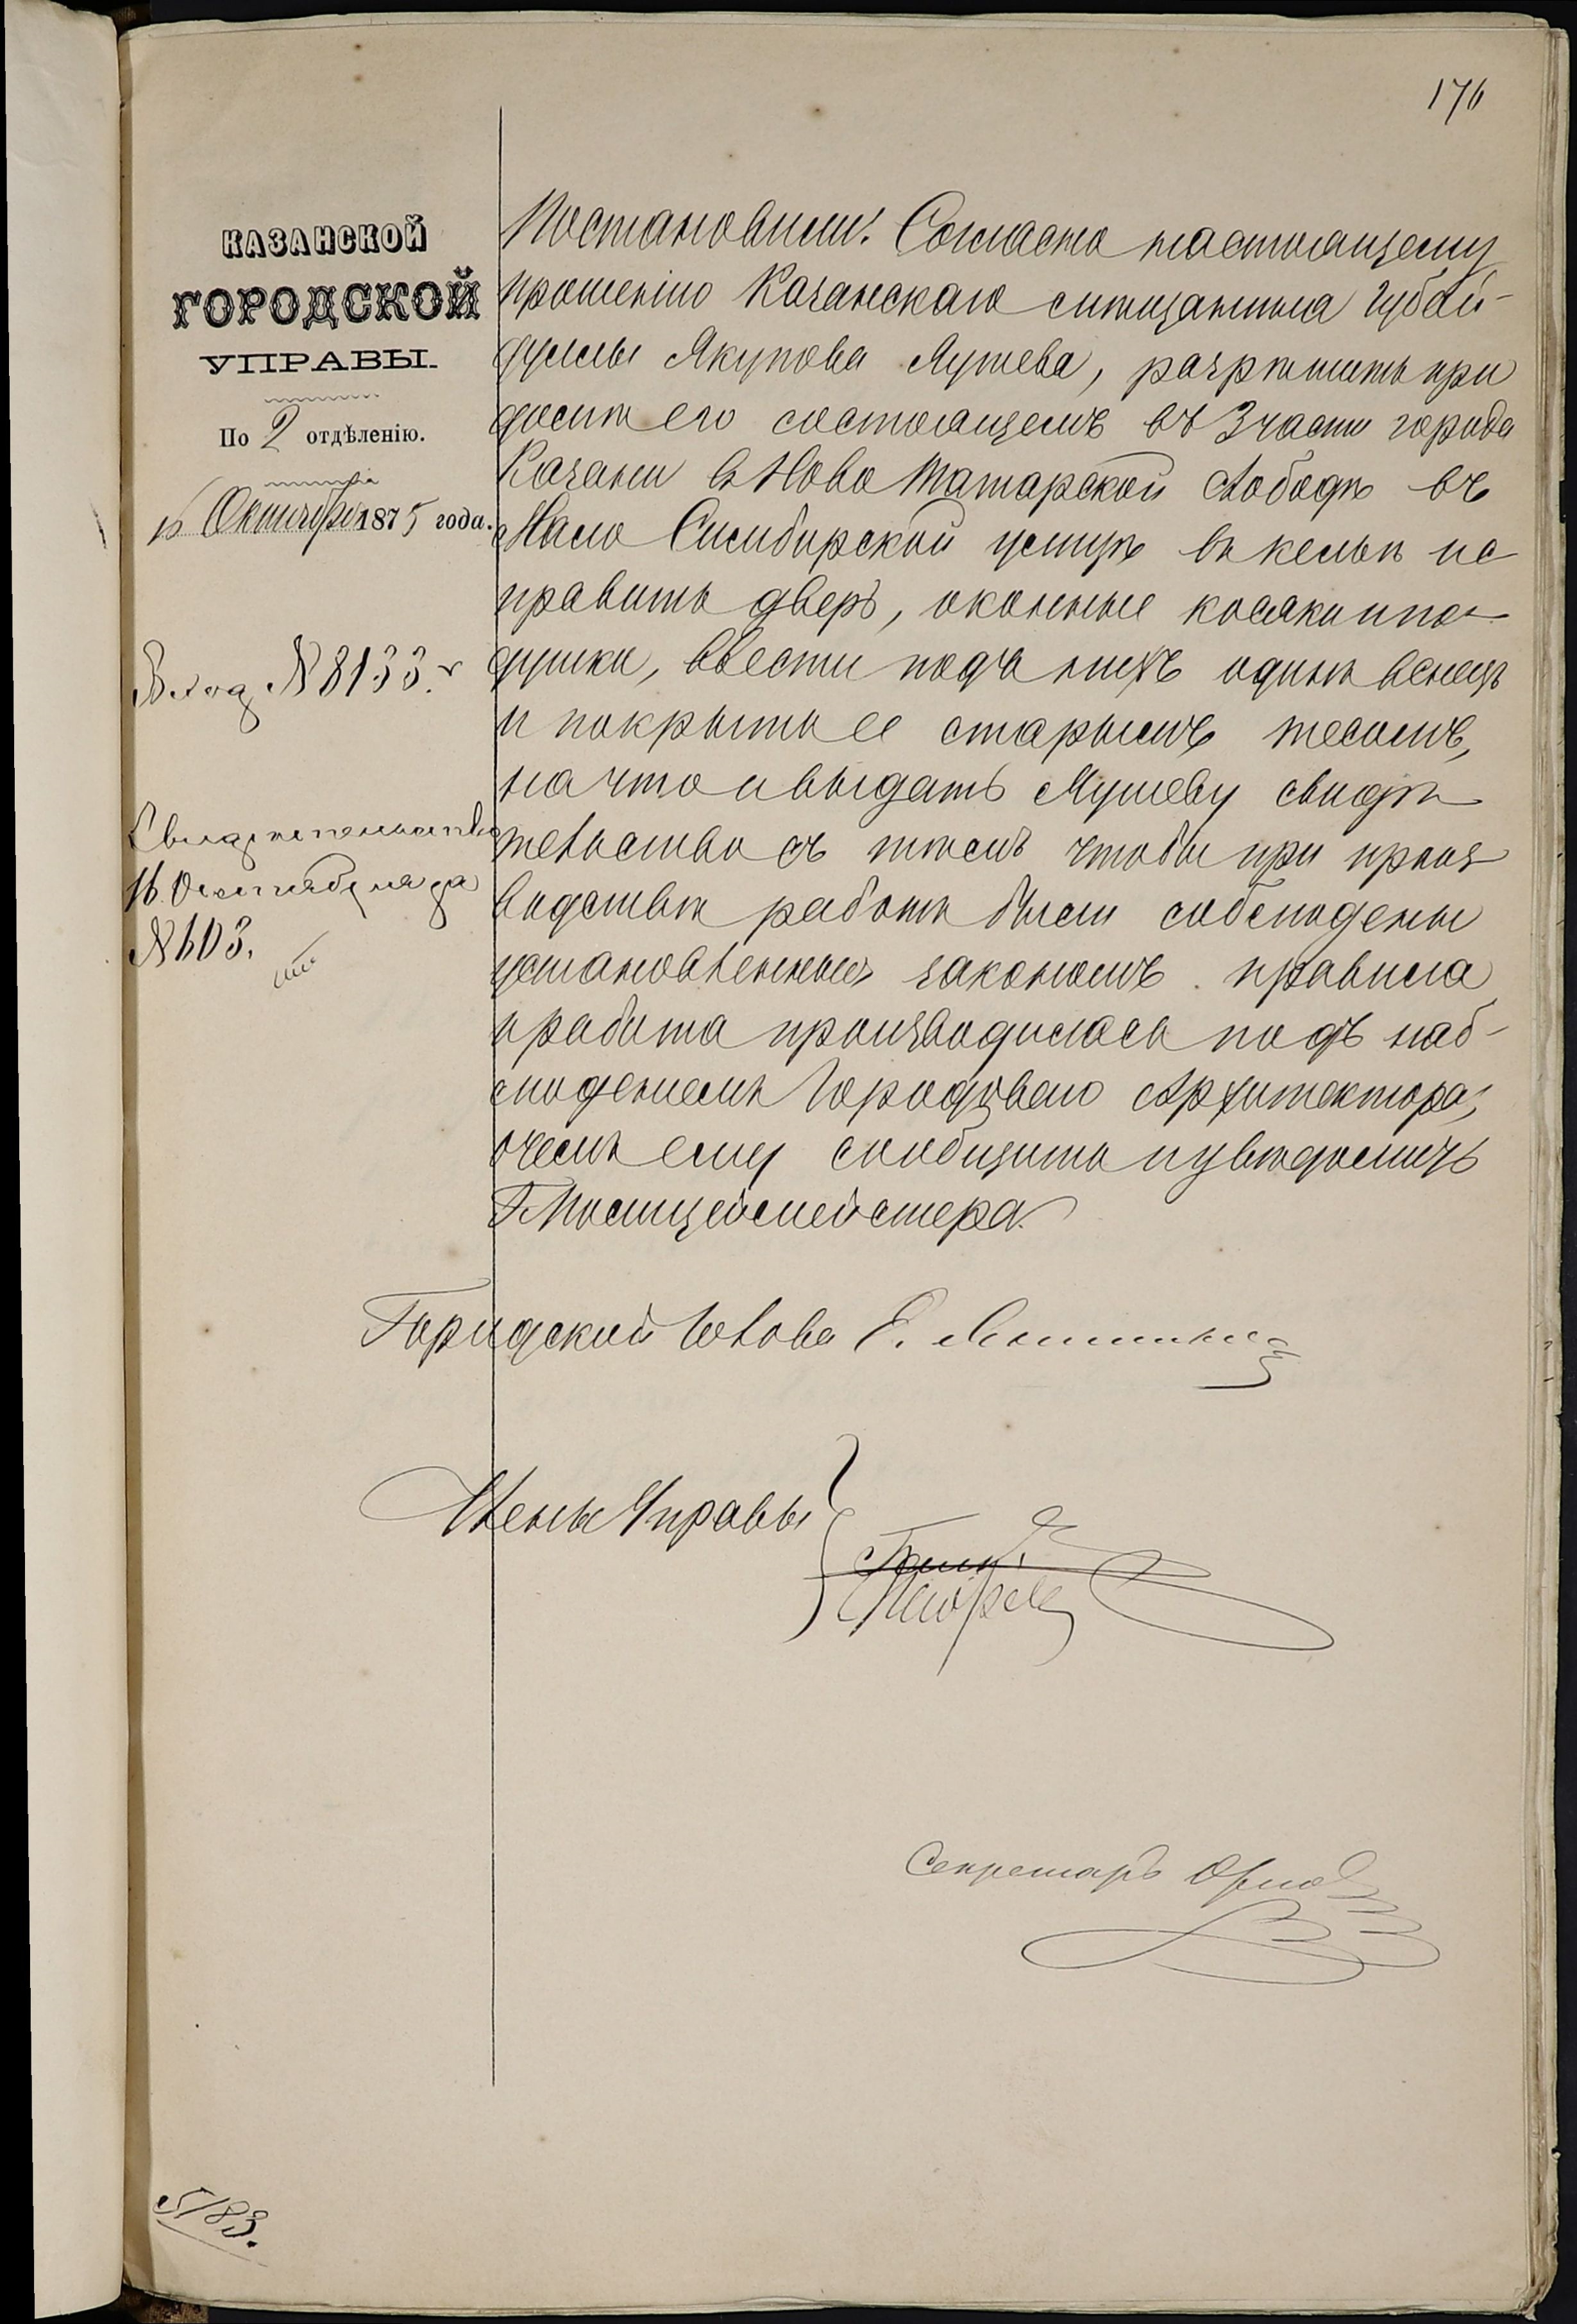 176
КАЗАНСКОЙ
ГОРОДСКОЙ
УПРАВЫ.
По 2 отдѣленію.
15 Октября 1875 года.
Вход. № 8133.
Свидѣтельство
16 Октября за
№ 603.
Постановили: Согласно настоящему
прошенію Казанскаго мѣщанина Губай-
дуллы Якупова, разрѣшить при
домѣ его состоящемъ въ 3 части города
Казани въ Ново Татарской Слободѣ въ
Мало Симбирской улицѣ въ кельѣ ис
править дверь, оконные косяки и по-
душки, ввести подъ нихъ одинъ венецъ
и покрыть ее старымъ тесомъ,
на что и выдать свидѣ
тельство съ тѣмъ чтобы при произ
водствѣ работъ были соблюдены
установленныя закономъ правила
и работа производилась подъ наб-
люденіемъ Городоваго Архитектора,
о чемъ ему сообщить и увѣдомить
Г Полицеймейстера.
Городской Голова Е.
Члены Управы
Секретарь Орлов
5183.